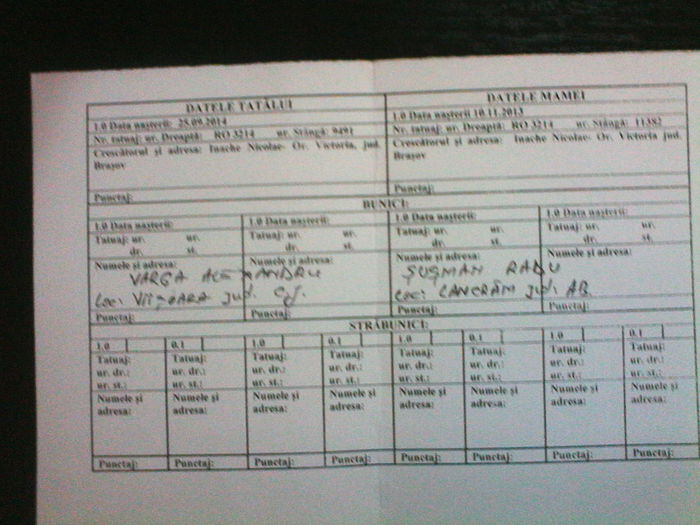 DATELE TATĂLUI
1.0 Data nașterii: 25.09.2014
Nr. tatuaj: ur. Dreaptă: RO 3214 ur. Stângă: 0491
Crescătorul și adresa: Inache Nicolae- Or. Victoria, jud.
Brașov
Punctaj:
DATELE MAMEI
1.0 Data nașterii 10.11.2013
Nr. tatuaj: ur. Dreaptă: RO 3214 ur. Stângă: 11382
Crescătorul și adresa: Inache Nicolae- Or. Victoria, jud.
Brașov
Punctaj:
BUNICI:
1.0 Data nașterii: 1.0 Data nașterii: 1.0 Data nașterii: 1.0 Data nașterii:
Tatuaj: ur. ur. Tatuaj: ur. ur. Tatuaj: ur. ur. Tatuaj: ur. ur.
dr. st. dr. st. dr. st. dr. st.
Numele și adresa: Numele și adresa: Numele și adresa: Numele și adresa:
VARGA ALEXANDRU ȘUȘMAN RADU
Loc: VIIȘOARA Jud. Cj. Loc: LANCRĂM Jud. AB
Punctaj: Punctaj: Punctaj: Punctaj:
STRĂBUNICI:
1.0 0.1 1.0 0.1 1.0 0.1 1.0 0.1
Tatuaj: Tatuaj: Tatuaj: Tatuaj: Tatuaj: Tatuaj: Tatuaj: Tatuaj:
ur. dr.: ur. dr.: ur. dr.: ur. dr.: ur. dr.: ur. dr.: ur. dr.: ur. dr.:
ur. st.: ur. st.: ur. st.: ur. st.: ur. st.: ur. st.: ur. st.: ur. st.:
Numele și Numele și Numele și Numele și Numele și Numele și Numele și Numele și
adresa: adresa: adresa: adresa: adresa: adresa: adresa: adresa:
Punctaj: Punctaj: Punctaj: Punctaj: Punctaj: Punctaj: Punctaj: Punctaj: